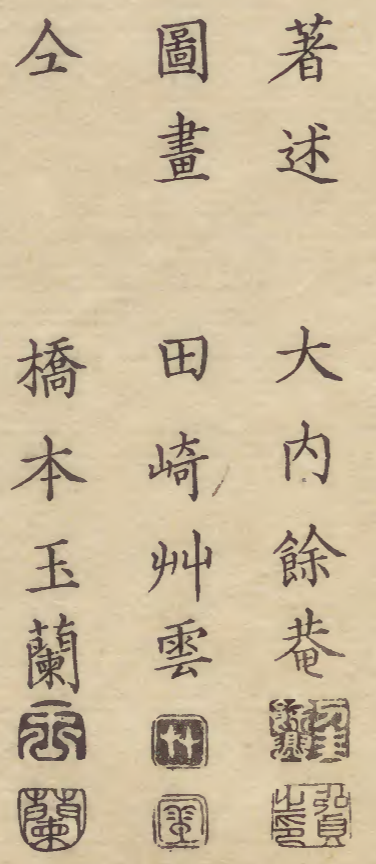 著述 大内餘菴
圖畫 田崎艸雲
仝 橋本玉蘭
艸
雲
玉
蘭